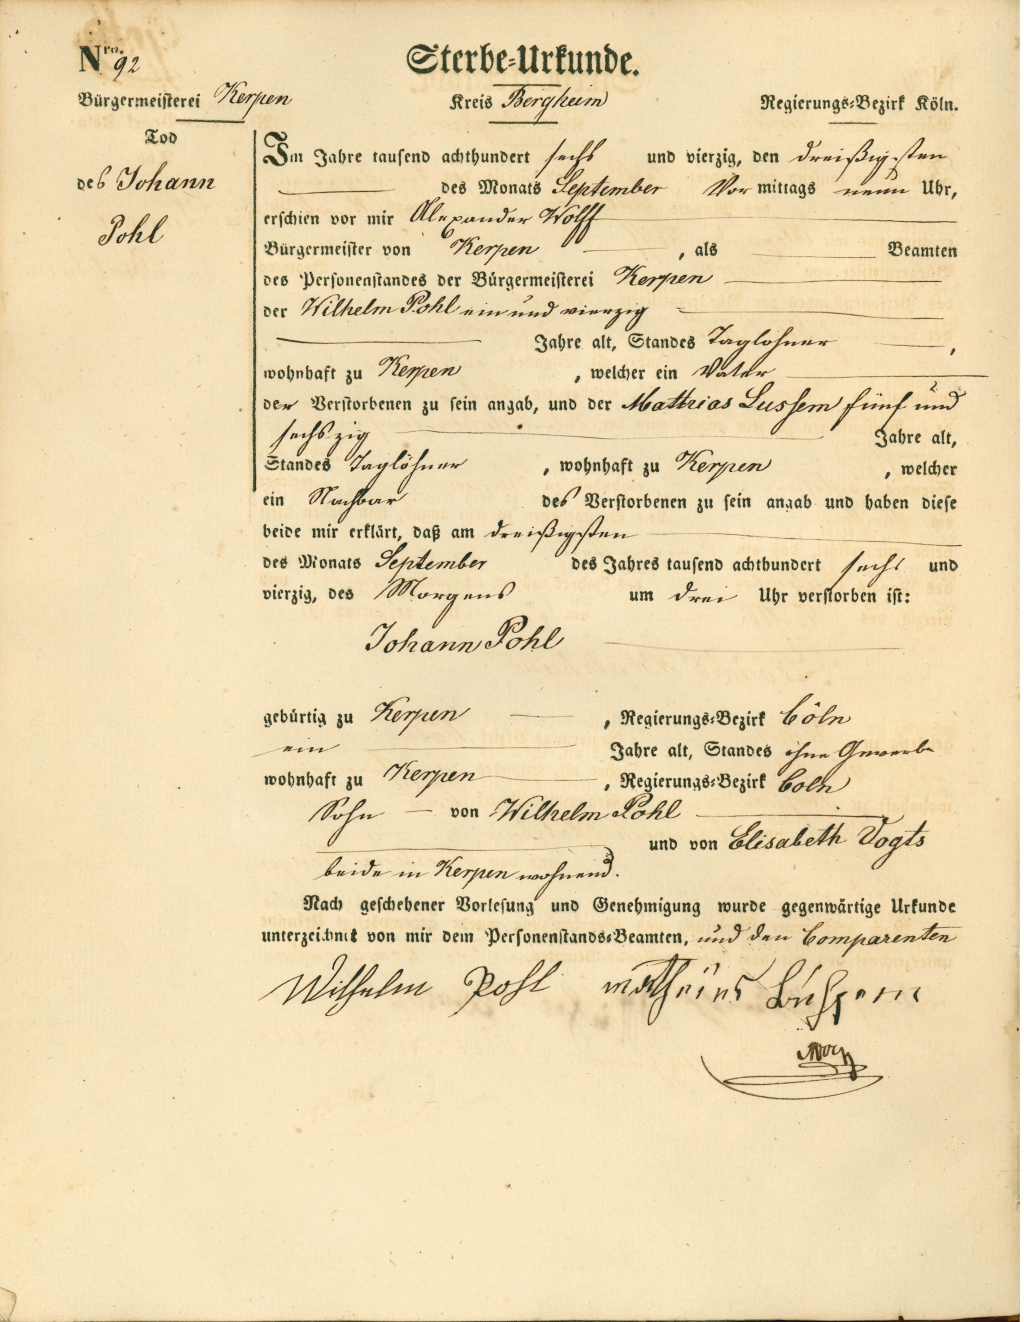 Nro. 92
Sterbe-Urkunde.
Bürgermeisterei Kerpen Kreis Bergheim Regierungs-Bezirk Köln.
Tod
des Johann
Pohl
Im Jahre tausend achthundert sechs und vierzig, den dreißigsten
des Monats September Vor mittags neun Uhr,
erschien vor mir Alexander Wolff
Bürgermeister von Kerpen , als Beamten
des Personenstandes der Bürgermeisterei Kerpen
der Wilhelm Pohl ein und vierzig
Jahre alt, Standes Taglöhner ,
wohnhaft zu Kerpen , welcher ein Vater
der Verstorbenen zu sein angab, und der Mathias Lussem fünf und
sechszig Jahre alt,
Standes Taglöhner , wohnhaft zu Kerpen , welcher
ein Nachbar des Verstorbenen zu sein angab und haben diese
beide mir erklärt, daß am dreißigsten
des Monats September des Jahres tausend achthundert sechs und
vierzig, des Morgens um drei Uhr verstorben ist:
Johann Pohl
gebürtig zu Kerpen , Regierungs-Bezirk Cöln
ein Jahre alt, Standes ohne Gewerbe
wohnhaft zu Kerpen , Regierungs-Bezirk Coln
Sohn von Wilhelm Pohl
und von Elisabeth Vogts
beide in Kerpen wohnend.
Nach geschehener Vorlesung und Genehmigung wurde gegenwärtige Urkunde
unterzeichnet von mir dem Personenstands-Beamten, und den Comparenten
Wilhelm Pohl